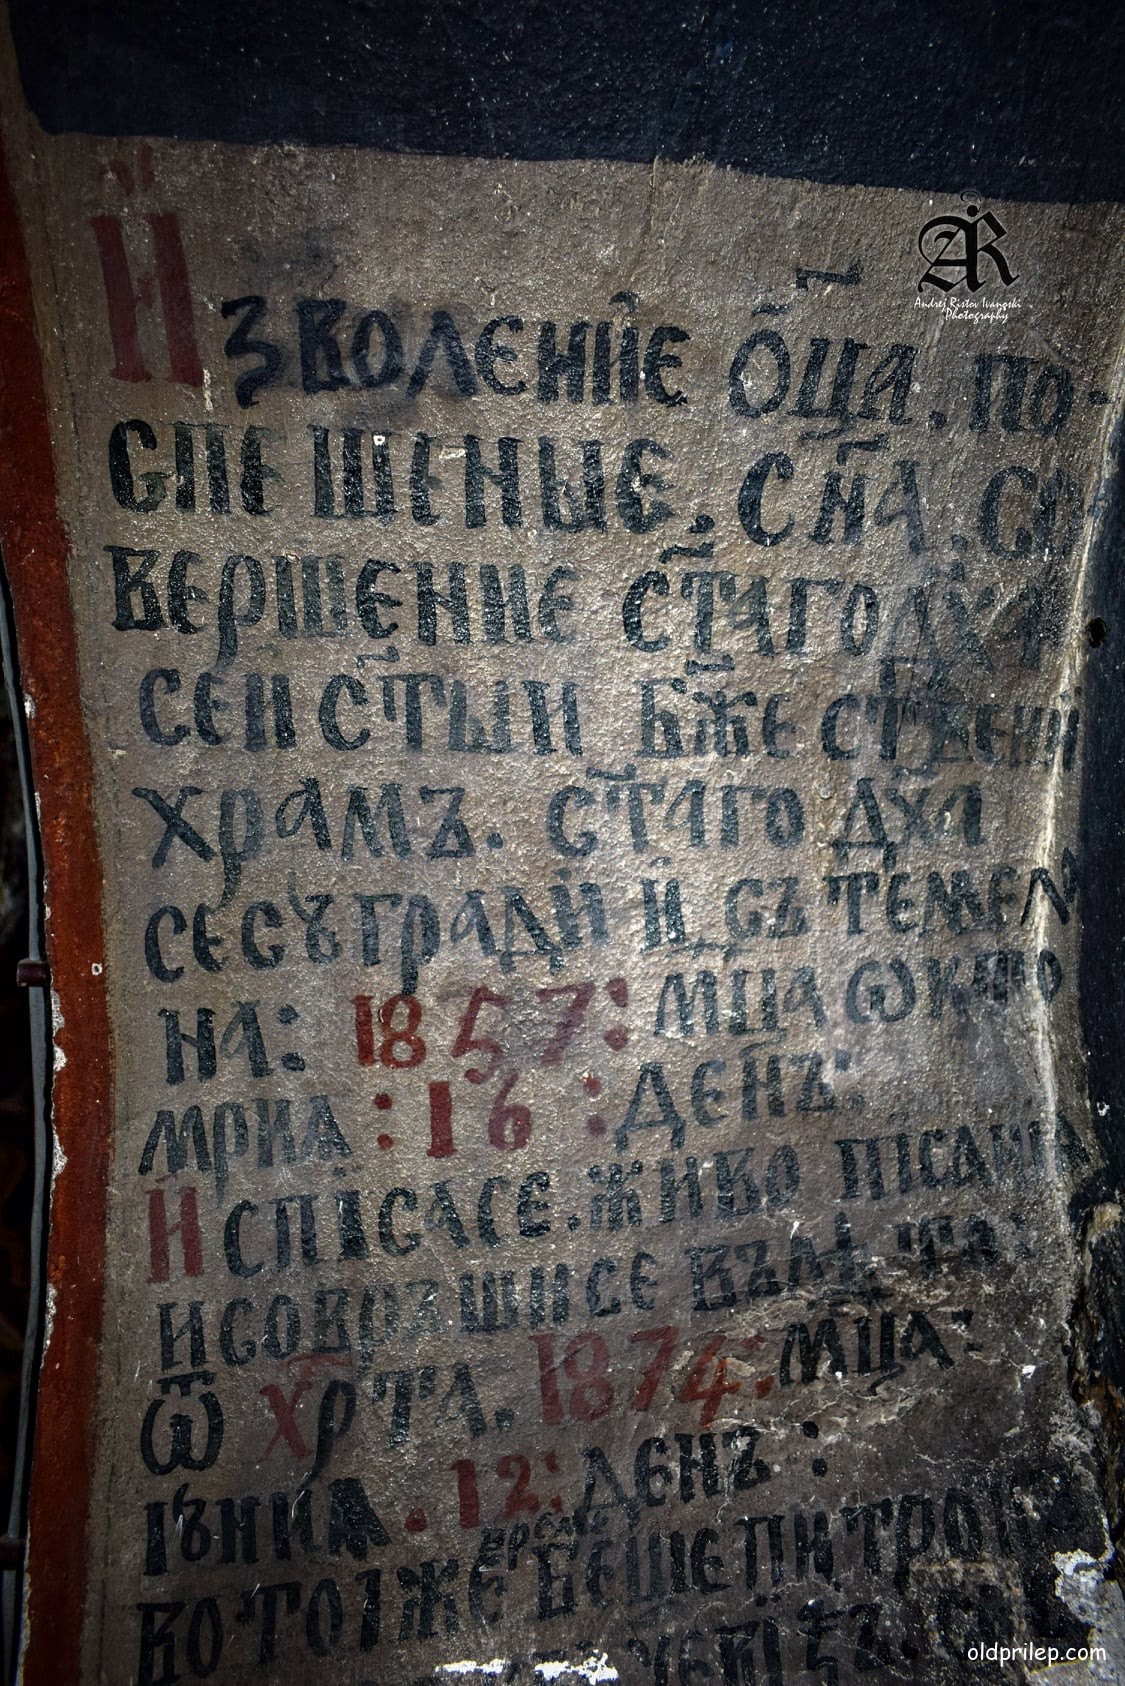 Изволенїе ѻ҃ца. по-
спешение. сн҃а. со-
вершение ст҃аго дх҃а
сеи ст҃ыи бж҃ественї
храмъ. ст҃аго дх҃а
сесꙋгради и съ темел
на: 1857: мц҃а ѡкто
мриа :16: денъ:
Испїсасе. живо
исовръшисе
ѿ хр҃та. 1874: мц҃а:
іꙋниа. 12: денъ:
време
во тоіже беше
Andrej Ristov Ivanoski
Photography
oldprilep.com